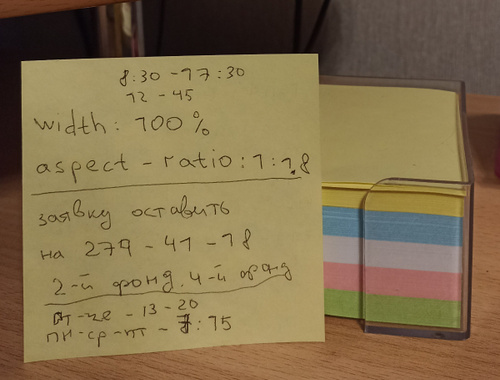 8:30 - 17:30
12 - 45
width: 100%
aspect-ratio: 1:1.8
заявку оставить
на 279 - 41 - 18
2-й фонд. 4-й фонд
- 13 - 20
пн-ср-пт - 8:15